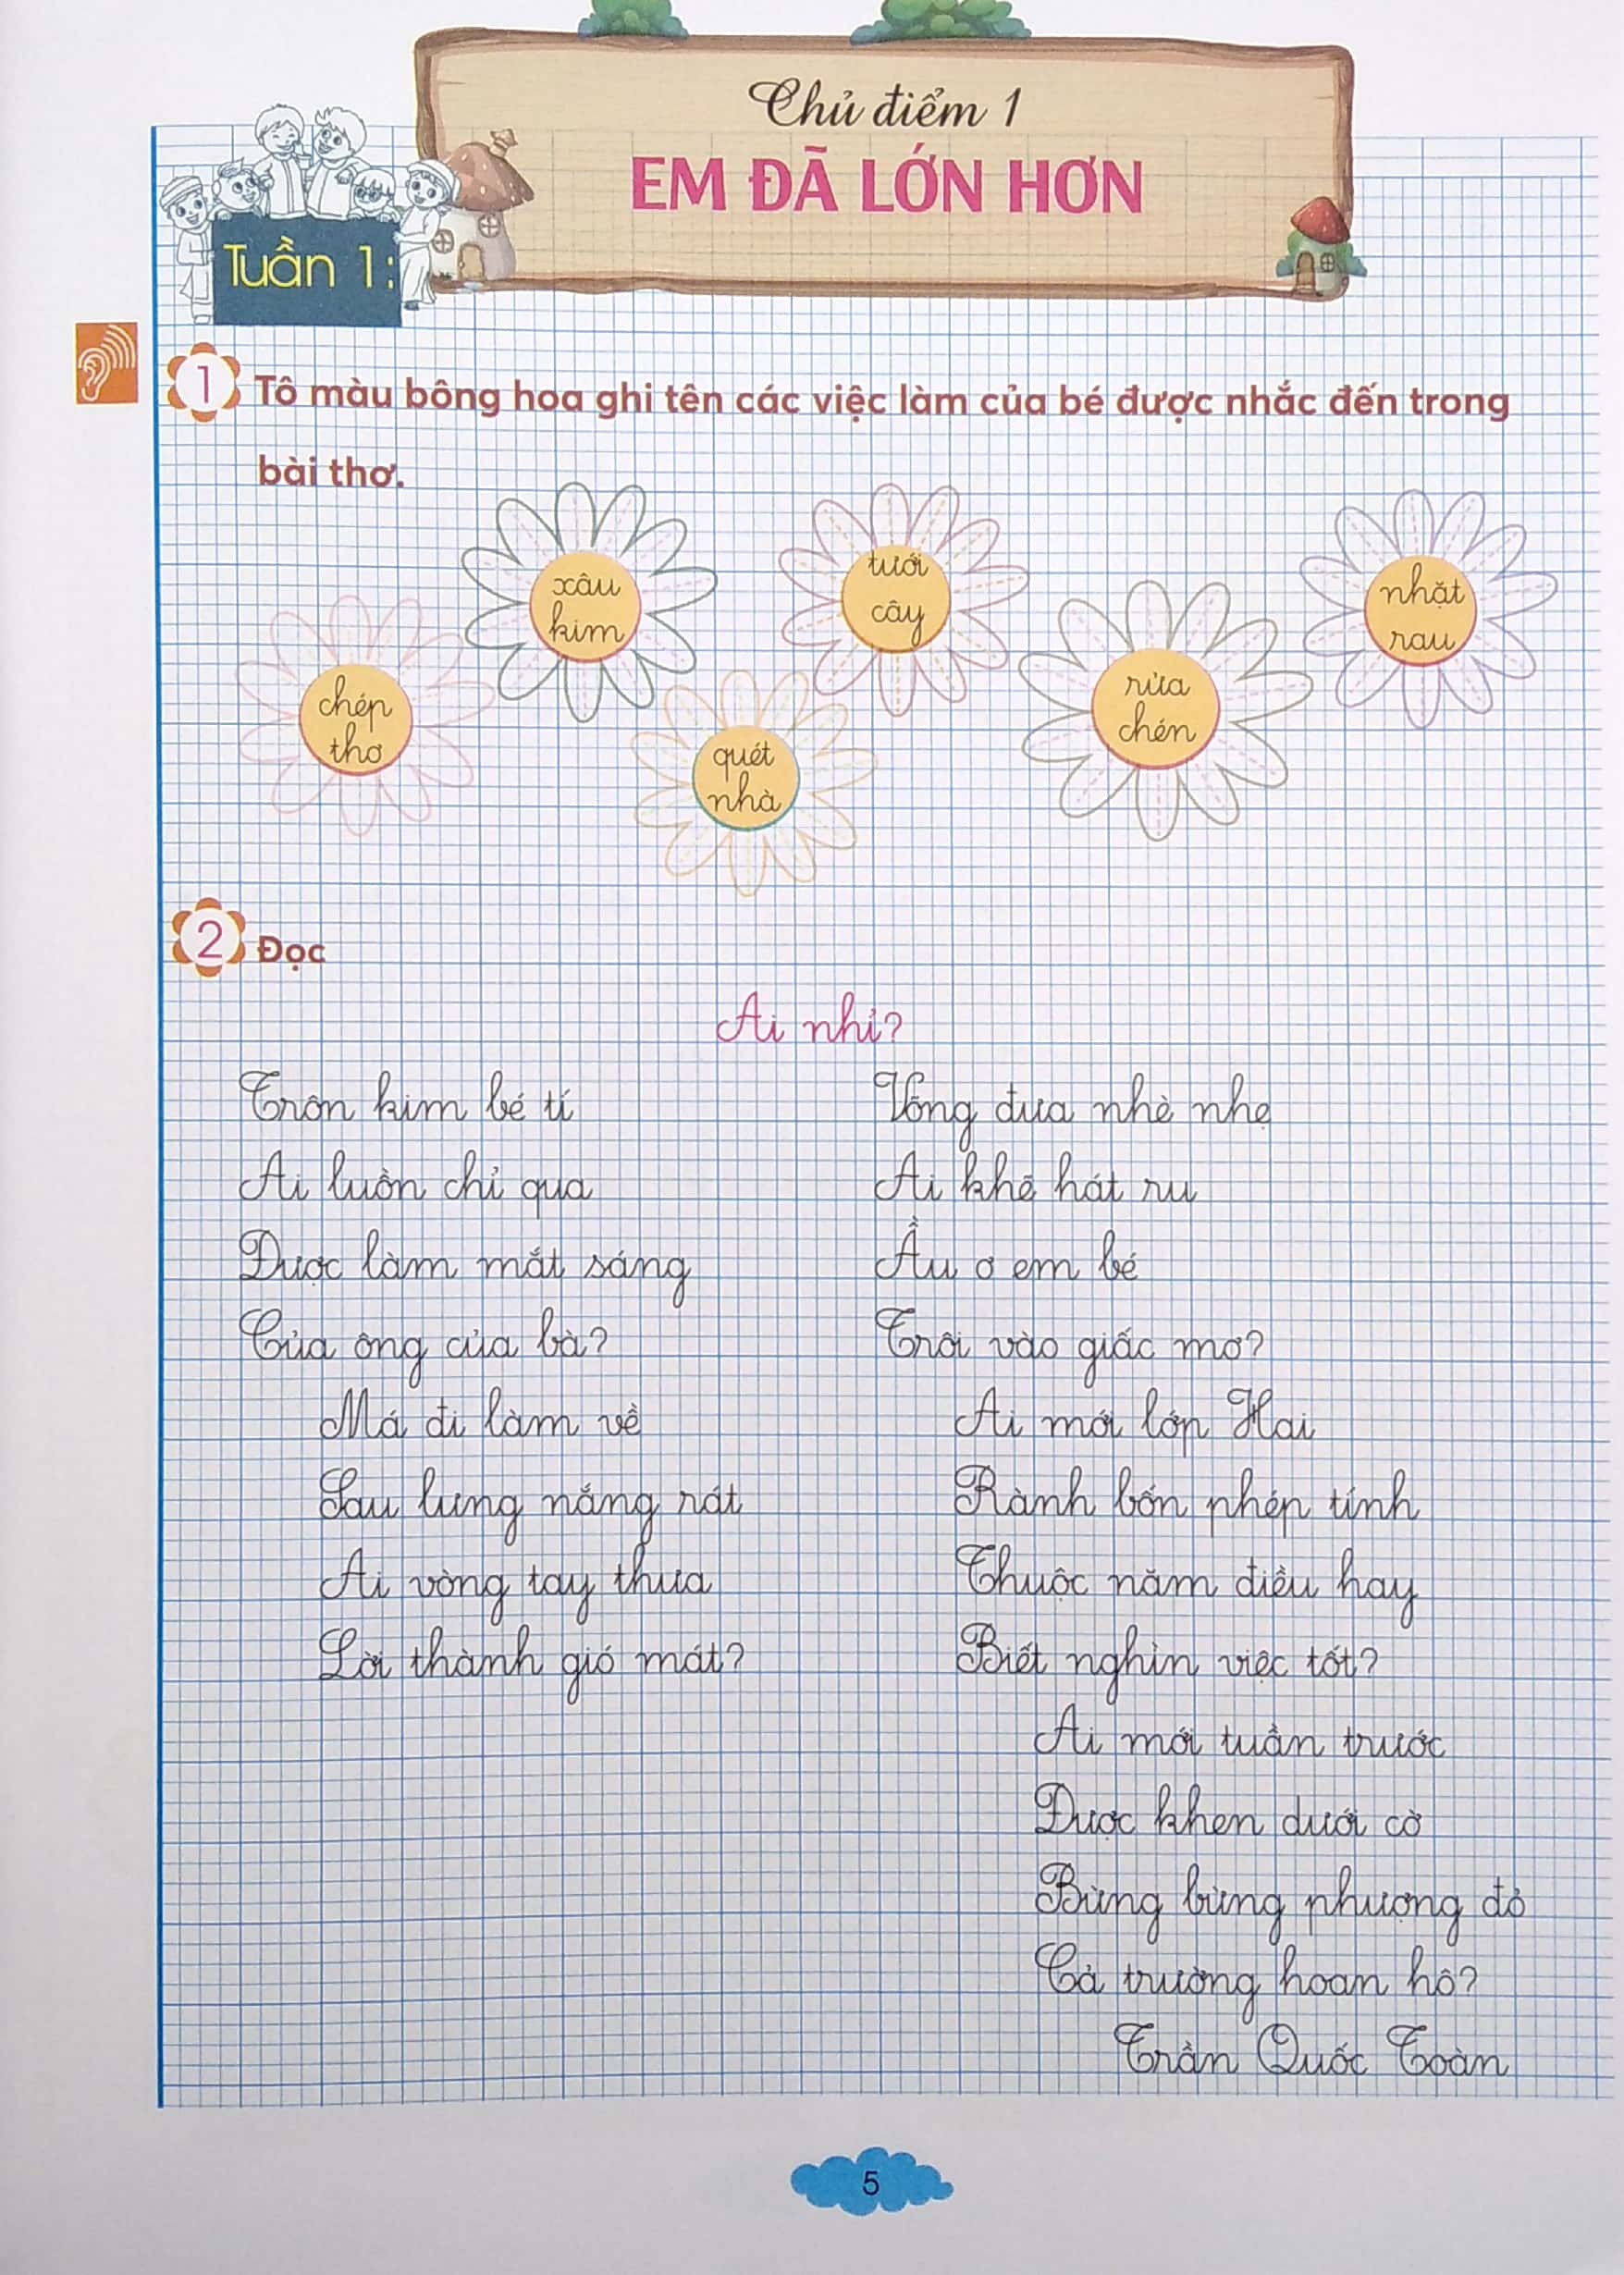 Chủ điểm 1
EM ĐÃ LỚN HƠN
Tuần 1:
1 Tô màu bông hoa ghi tên các việc làm của bé được nhắc đến trong
bài thơ.
xâu
kim
tưới
cây
nhặt
rau
chép
thơ
rửa
chén
quét
nhà
2 Đọc
Ai nhỉ?
Trôn kim bé tí
Ai luồn chỉ qua
Được làm mắt sáng
Của ông của bà?
Má đi làm về
Sau lưng nắng rát
Ai vòng tay thưa
Lời thành gió mát?
Võng đưa nhè nhẹ
Ai khẽ hát ru
Ầu ơ em bé
Trôi vào giấc mơ?
Ai mới lớp Hai
Rành bốn phép tính
Thuộc năm điều hay
Biết nghìn việc tốt?
Ai mới tuần trước
Được khen dưới cờ
Bừng bừng phượng đỏ
Cả trường hoan hô?
Trần Quốc Toàn
5